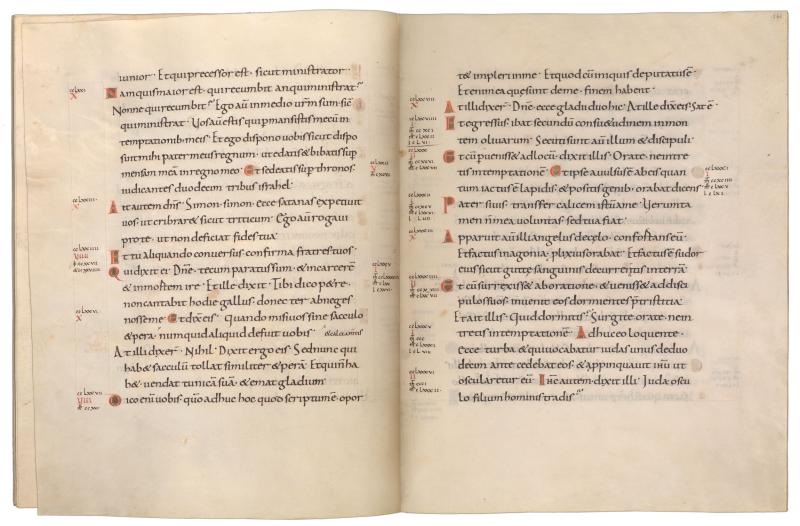 iunior · Et qui precessor est · sicut ministrator ·
Nam quis maior est · qui recumbit an qui ministrat ·
Nonne qui recumbit · Ego aū in medio urm̄ sum · sic̄
qui ministrat · Vos aū estis qui pmansistis mecū in
temptationib; meis · Et ego dispono uobis sicut dispo
suit mihi pater meus regnum · ut edatis & bibatis sup
mensam meā in regno meo · Et sedeatis sup thronos ·
iudicantes duodecim tribus israhel ·
Ait autem dn̄s · Simon · simon · ecce satanas expetiuit
uos · ut cribraret sicut triticum · Ego aū rogaui
pro te · ut non deficiat fides tua ·
Et tu aliquando conuersus · confirma fratres tuos ·
Qui dixit ei · Dn̄e · tecum paratus sum · & in carcerē
& in mortem ire · Et ille dixit · Tibi dico petre ·
non cantabit hodie gallus · donec ter abneges
nosse me · Et dix̄ eis · Quando misi uos sine sacculo
& pera · numquid aliquid defuit uobis · & calciamtis
At illi dixer̄ · Nihil · Dixit ergo eis · Sed nunc qui
hab& sacculū tollat similiter & perā · Et qui n̄ ha
b& · uendat tunicā suā · & emat gladium
Dico enī uobis · quō adhuc hoc quod scriptum ē · opor
t& impleri in me · Et quod cū iniquis deputatus ē ·
Etenim ea que sunt de me · finem habent ·
At illi dixer̄ · Dn̄e · ecce gladii duo hic · At ille dix̄ eis · Sat ē ·
Et egressus · ibat secundū consu&udinem in mon
tem oliuarum · Secuti sunt aū illum & discipuli ·
Et cū peruenis& ad locū · dixit illis · Orate · ne intre
tis in temptationē · Et ipse auulsus ē ab eis quan
tum iactus ē lapidis · & positis genib; orabat dicens ·
Pater si uis · transfer calicem istū a me · Verumta
men n̄ mea uoluntas · sed tua fiat ·
Apparuit aū illi angelus de cęlo · confortans eū ·
Et factus in agonia · plixius orabat · Et factus ē sudor
eius sicut guttę sanguinis decurrentis in terrā
Et cū surrexiss& ab oratione · & ueniss& ad disci
pulos suos · inuenit eos dormientes p̄ tristitia ·
Et ait illis · Quid dormitis · Surgite · orate · ne in
tretis in temptationē · Adhuc eo loquente ·
ecce turba · & qui uocabatur iudas unus de duo
decim antecedebat eos · & appinquauit ihū ut
oscularetur eū · Ihc̄ autem dixit illi · Iuda oscu
lo filium hominis tradis ·